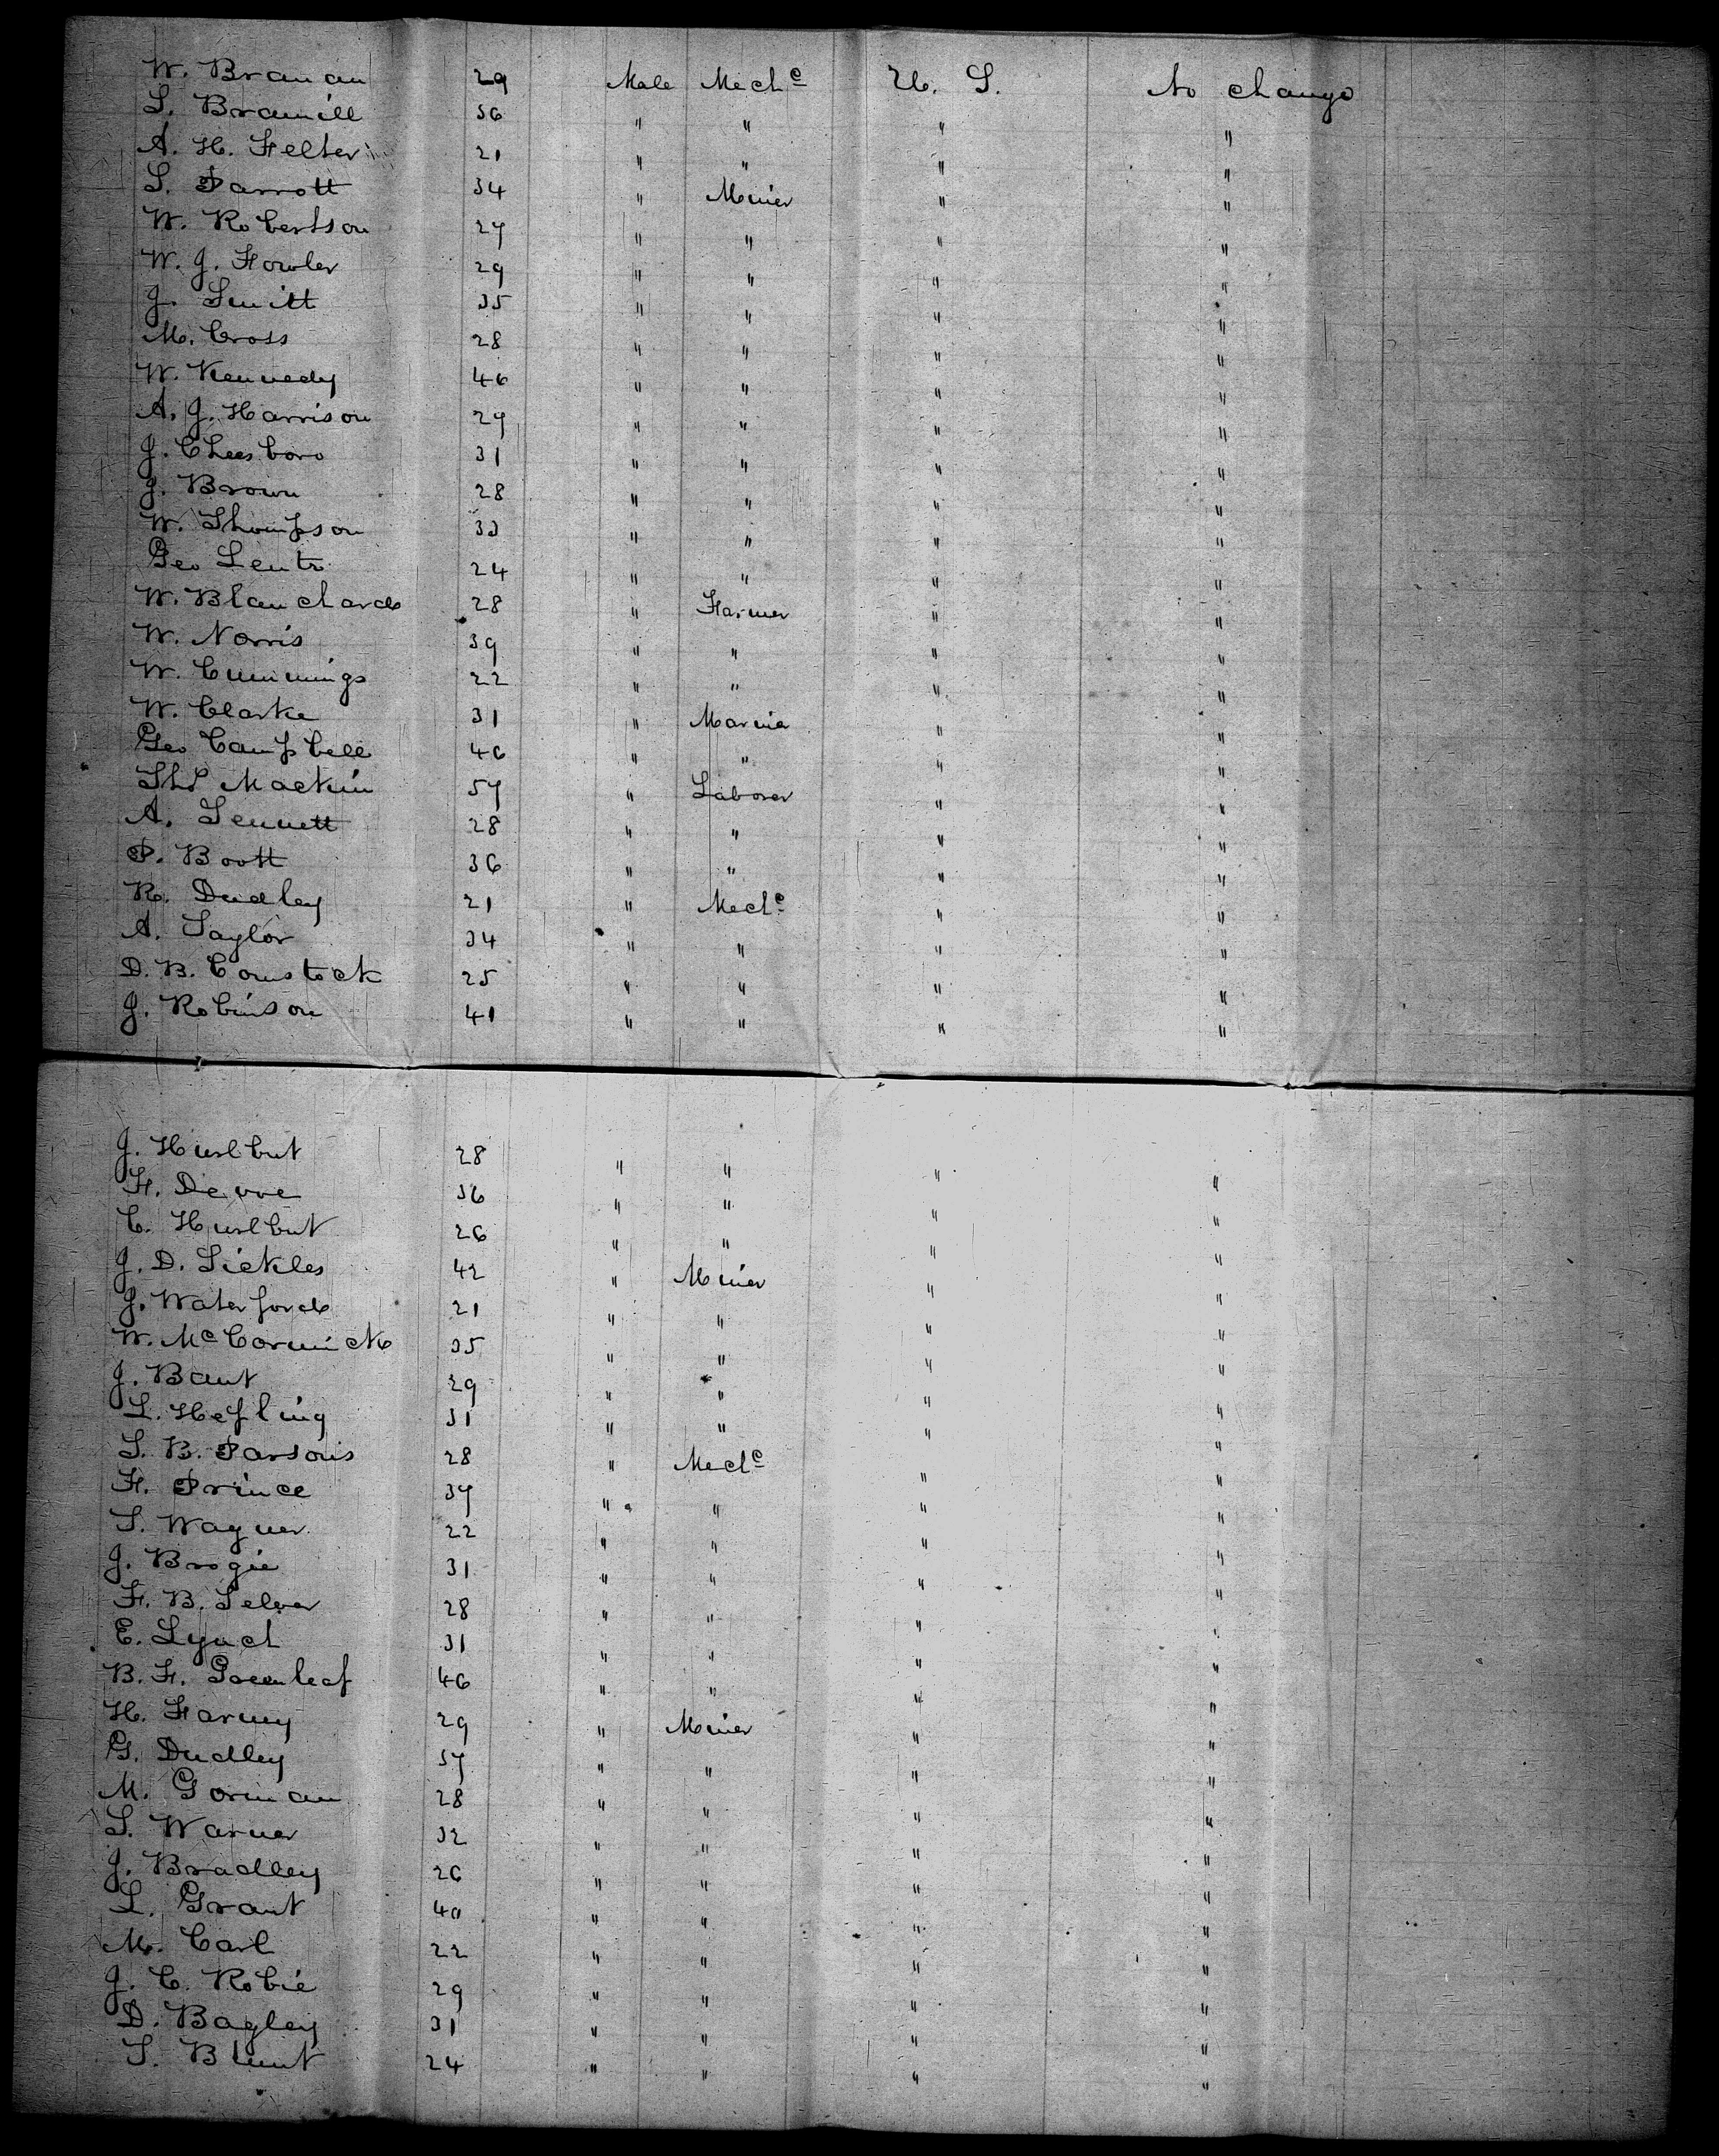 W. Branan 29 Male Mech^c U. S. No change
S. Bramill 36 " " " "
A. H. Felter 21 " " " "
S. Parrott 34 " Miner " "
W. Robertson 27 " " " "
W. J. Fowler 29 " " " "
J. Smitt 35 " " " "
M. Cross 28 " " " "
W. Kennedy 46 " " " "
A. J. Harrison 27 " " " "
J. Cheesboro 31 " " " "
J. Brown 28 " " " "
W. Thompson 33 " " " "
Geo Lentz 24 " " " "
W. Blanchard 28 " Farmer " "
W. Norris 39 " " " "
W. Cummings 22 " " " "
W. Clarke 31 " Marine " "
Geo Campbell 46 " " " "
Thos Mackin 57 " Laborer " "
A. Sennett 28 " " " "
P. Bott 36 " " " "
R. Dudley 21 " Mech^c " "
A. Taylor 34 " " " "
D. B. Comstock 25 " " " "
J. Robinson 41 " " " "
J. Hurlbut 28 " " " "
F. Devoe 36 " " " "
C. Hurlbut 26 " " " "
J. D. Sickles 42 " Miner " "
J. Waterford 21 " " " "
W. McCormick 35 " " " "
J. Bant 29 " " " "
L. Hefling 31 " " " "
S. B. Parsons 28 " Mech^c " "
F. Prince 37 " " " "
S. Wagner 22 " " " "
J. Brogie 31 " " " "
F. B. Selver 28 " " " "
E. Lynch 31 " " " "
B. F. Greenleaf 46 " " " "
H. Farmy 29 " Miner " "
G. Dudley 37 " " " "
M. Gorman 28 " " " "
S. Warner 32 " " " "
J. Bradley 26 " " " "
L. Grant 40 " " " "
M. Carl 22 " " " "
J. C. Robie 29 " " " "
D. Bagley 31 " " " "
S. Blunt 24 " " " "